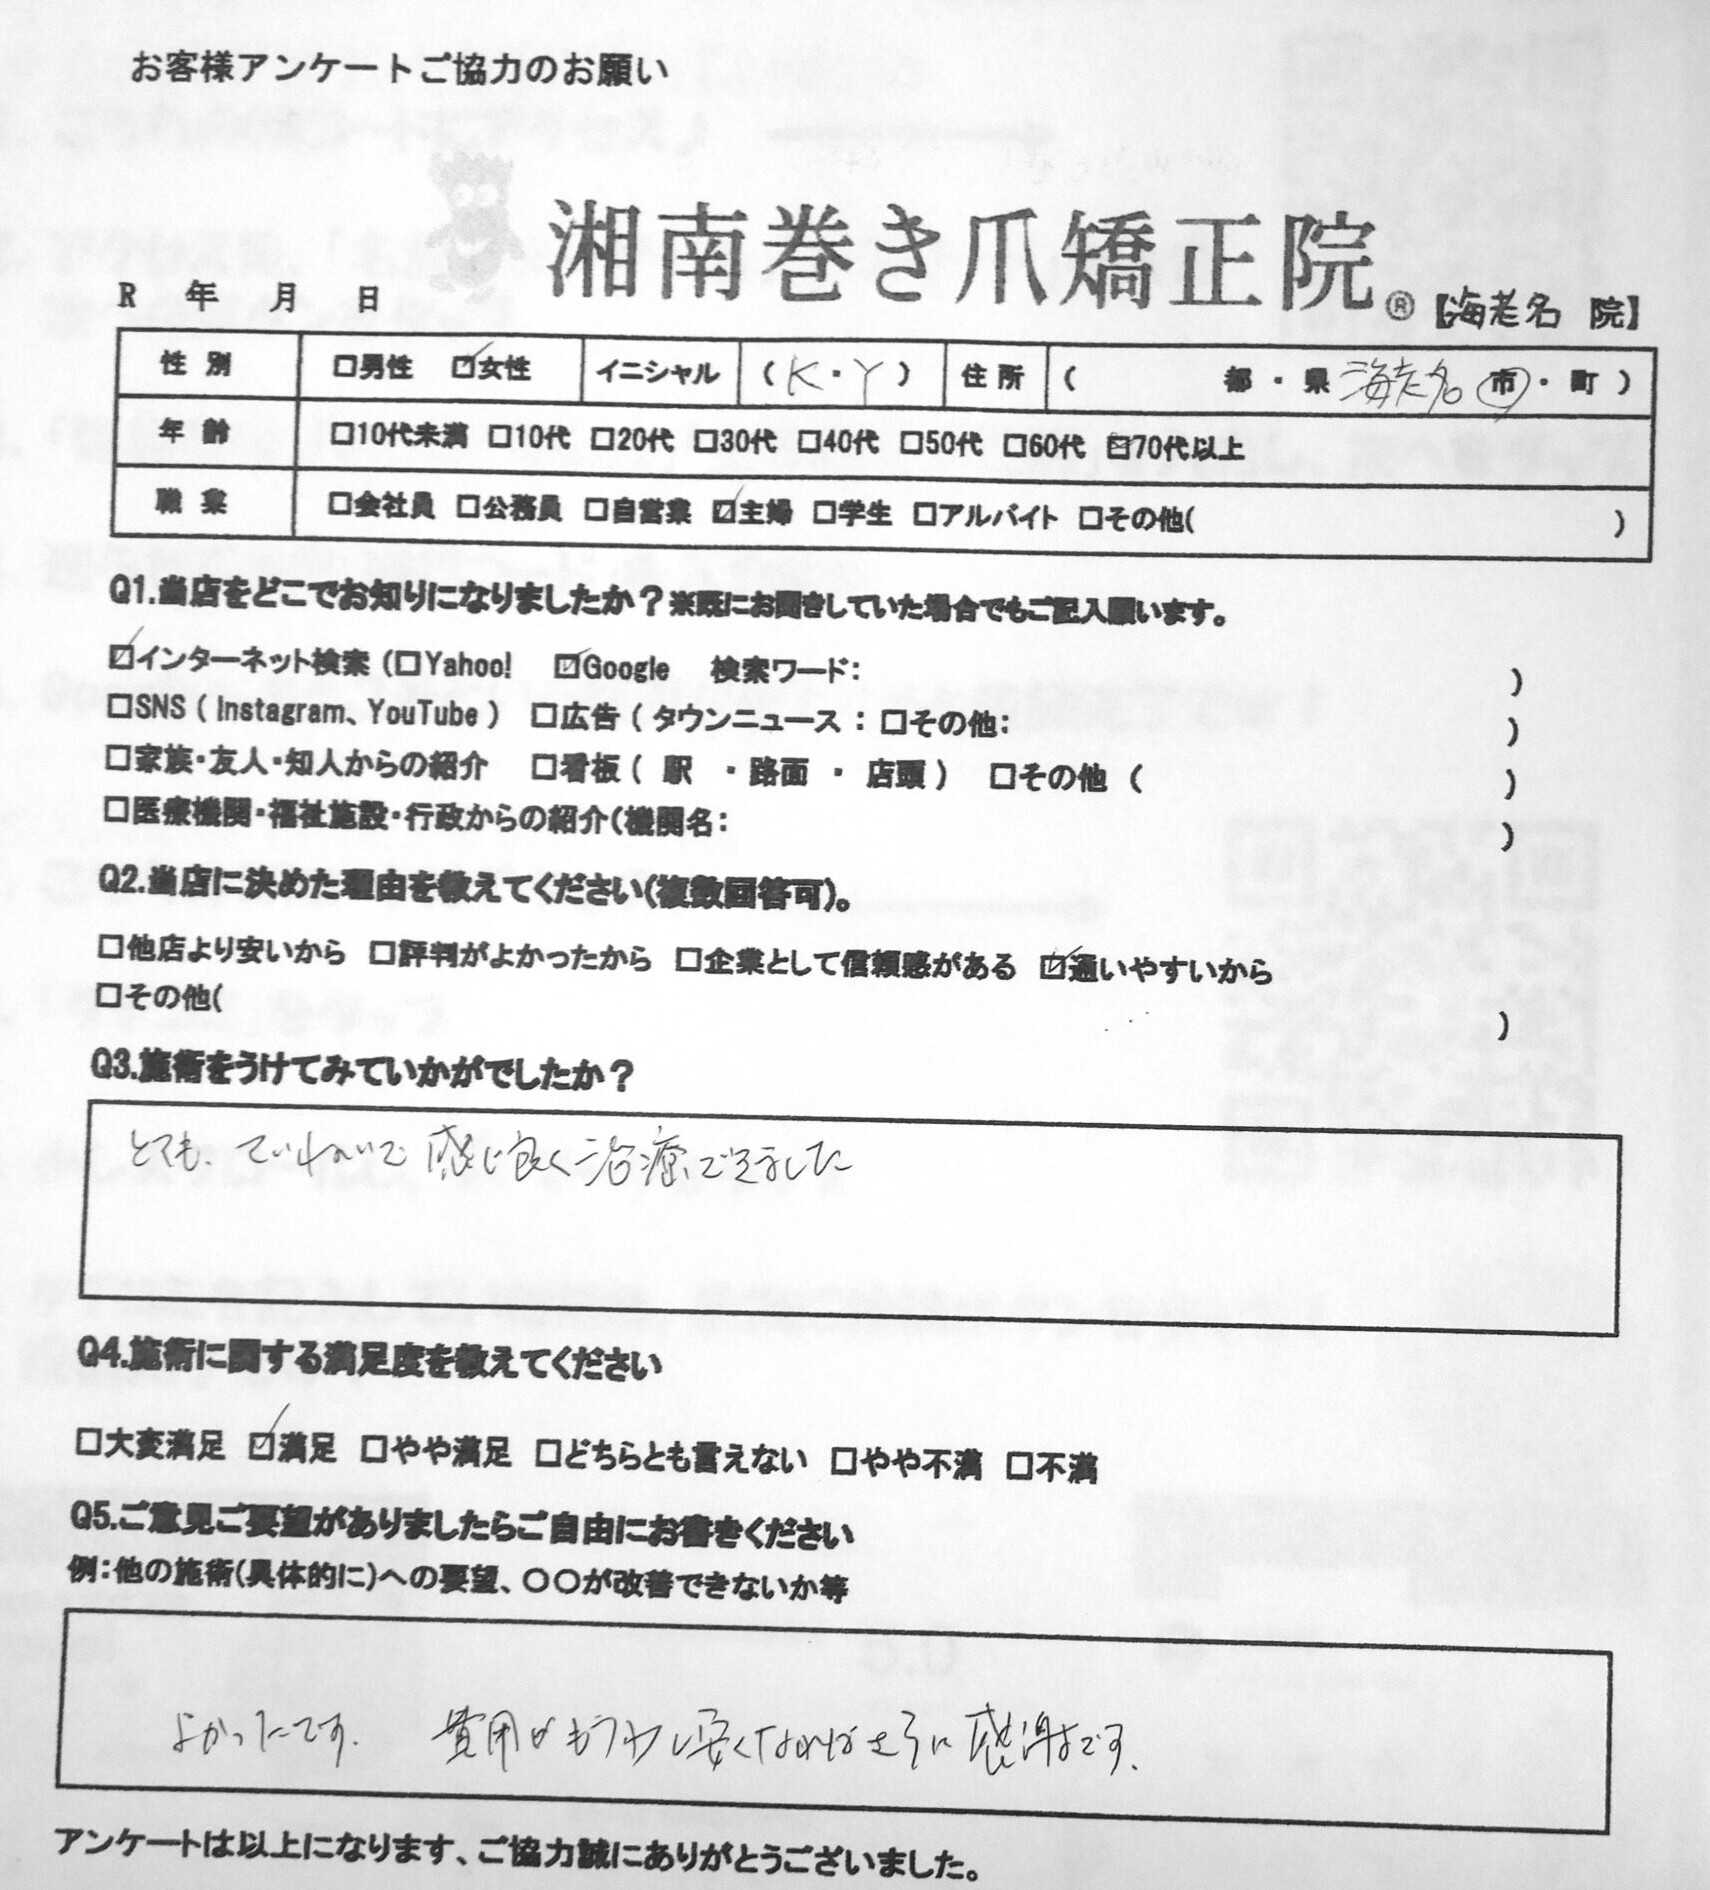 お客様アンケートご協力のお願い
湘南巻き爪矯正院® 【海老名 院】
R 年 月 日
性別 □男性 ☑女性 イニシャル (K・Y) 住所 ( 都・県 海老名 市・町 )
年齢 □10代未満 □10代 □20代 □30代 □40代 □50代 □60代 ☑70代以上
職業 □会社員 □公務員 □自営業 ☑主婦 □学生 □アルバイト □その他( )
Q1.当店をどこでお知りになりましたか?※既にお聞きしていた場合でもご記入願います。
☑インターネット検索 (□Yahoo! ☑Google 検索ワード: )
□SNS ( Instagram、YouTube ) □広告 ( タウンニュース : □その他: )
□家族・友人・知人からの紹介 □看板 ( 駅 ・路面 ・ 店頭 ) □その他 ( )
□医療機関・福祉施設・行政からの紹介(機関名: )
Q2.当店に決めた理由を教えてください(複数回答可)。
□他店より安いから □評判がよかったから □企業として信頼感がある ☑通いやすいから
□その他( )
Q3.施術をうけてみていかがでしたか?
とても、ていねいで感じ良く治療できました
Q4.施術に関する満足度を教えてください
□大変満足 ☑満足 □やや満足 □どちらとも言えない □やや不満 □不満
Q5.ご意見ご要望がありましたらご自由にお書きください
例:他の施術(具体的に)への要望、〇〇が改善できないか等
よかったです. 費用がもう少し安くなればさらに感謝です.
アンケートは以上になります、ご協力誠にありがとうございました。